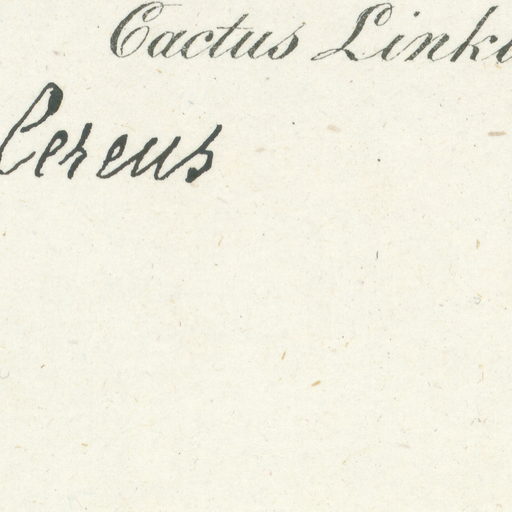 Cactus Linki
Cereus